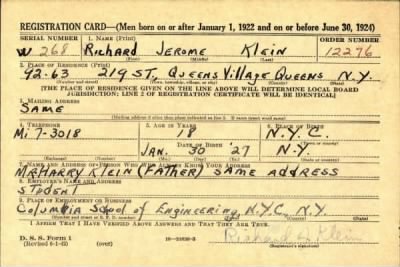 REGISTRATION CARD—(Men born on or after January 1, 1922 and on or before June 30, 1924)
SERIAL NUMBER 1. NAME (Print) ORDER NUMBER
W 268 Richard Jerome Klein 12276
(First) (Middle) (Last)
2. PLACE OF RESIDENCE (Print)
92-63 219 ST, Queens Village Queens N.Y.
[THE PLACE OF RESIDENCE GIVEN ON THE LINE ABOVE WILL DETERMINE LOCAL BOARD
JURISDICTION; LINE 2 OF REGISTRATION CERTIFICATE WILL BE IDENTICAL]
3. MAILING ADDRESS
SAME
4. TELEPHONE 5. AGE IN YEARS 6. PLACE OF BIRTH
Mi 7-3018 18 N.Y.C.
DATE OF BIRTH
JAN. 30 '27 N.Y
7. NAME AND ADDRESS OF PERSON WHO WILL ALWAYS KNOW YOUR ADDRESS
MR HARRY KLEIN (FATHER) SAME ADDRESS
8. EMPLOYER'S NAME AND ADDRESS
STUDENT
9. PLACE OF EMPLOYMENT OR BUSINESS
Columbia School of Engineering, N.Y.C., N.Y.
I AFFIRM THAT I HAVE VERIFIED ABOVE ANSWERS AND THAT THEY ARE TRUE.
D. S. S. Form 1
(Revised 6-1-42) (over)
Richard J Klein